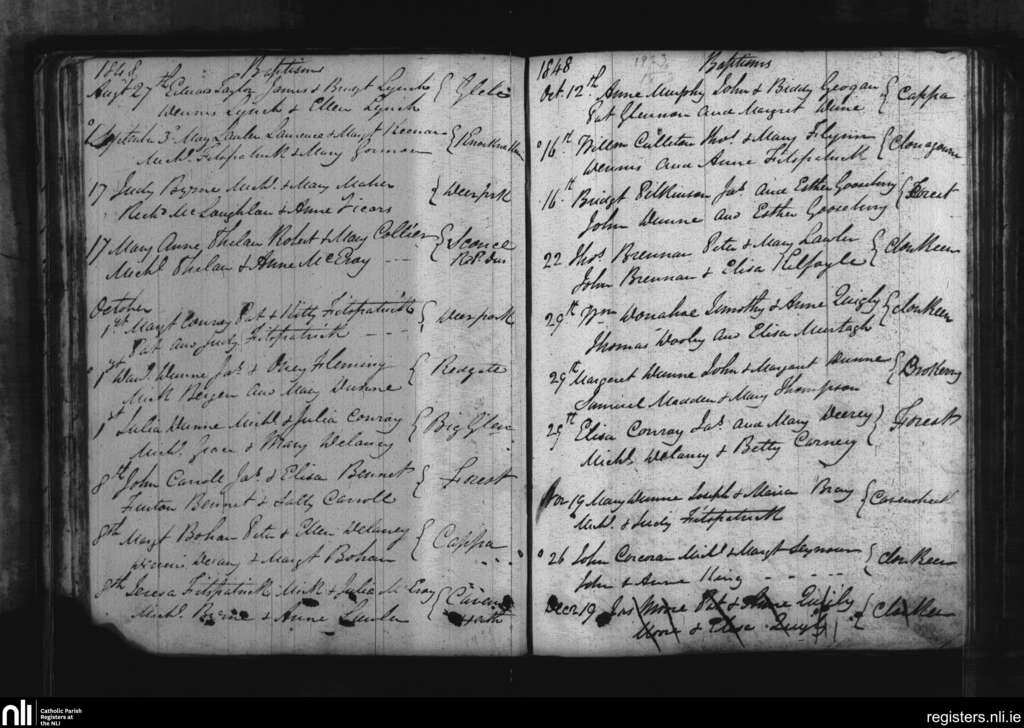 1848 Baptisms
Augt 27th Edward Taylor James & Bridgt Lynch { Glebe
Dennis Lynch & Ellen Lynch
September 3d Mary Lawler Laurence & Margt Keenan {
Michl Fitzpatrick & Mary Gorman
17 Judy Byrne Michl & Mary Maher { Deerpark
Richd McLaughlan & Anne Vicars
17 Mary Anne Phelan Robert & Mary Collier { Sconce
Michl Phelan & Anne McEvoy
October
1st Margt Conroy Pat & Kitty Fitzpatrick { Deerpark
Pat and Judy Fitzpatrick
1st Danl Dunne Jas & Fleming { Redgate
Mick Bergen and Mary Dunne
1st Julia Dunne Michl & Julia Conroy { Big Glen
Michl Grace & Mary Delaney
8th John Carroll Jas & Elisa Bennet { Forest
Finton Bennet & Sally Carroll
8th Margt Bohan Peter & Ellen Delaney { Cappa
Dennis & Margt Bohan
8th Teresa Fitzpatrick Mick & Julia McEvoy {
Michl & Anne Lawler
1848 Baptisms
Oct. 12th Anne Murphy John & Biddy Geogan { Cappa
Pat Glennon and Margret Dunne
16th Willm Culleton Thos & Mary { Clonagowne
Dennis and Anne Fitzpatrick
16th Bridget Pilkinson Jas and Esther Gooseberry { Forest
John Dunne and Esther Gooseberry
22 Thos Brennan Peter & Mary Lawler { Clonkeen
John Brennan & Elisa Kilfoyle
29th Wm Donahoe Timothy & Anne Quigly { Clonkeen
Thomas Dooly and Elisa Murtagh
29th Margaret Dunne John & Margaret Dunne {
Samuel Madden & Mary Thompson
29th Elisa Conroy Jas and Mary Deerey } Forest
Michl Delaney & Betty Carney
Nov 19 Mary Dunne Joseph & Maria Bray {
Michl & Judy Fitzpatrick
26 John Corcoran Michl & Margt Seymour { Clonkeen
John & Anne King
Decr 19 Jas Moore Pat & Anne Quigly { Clonkeen
Moore & Elisa Quigly
nli Catholic Parish
Registers at
the NLI
registers.nli.ie